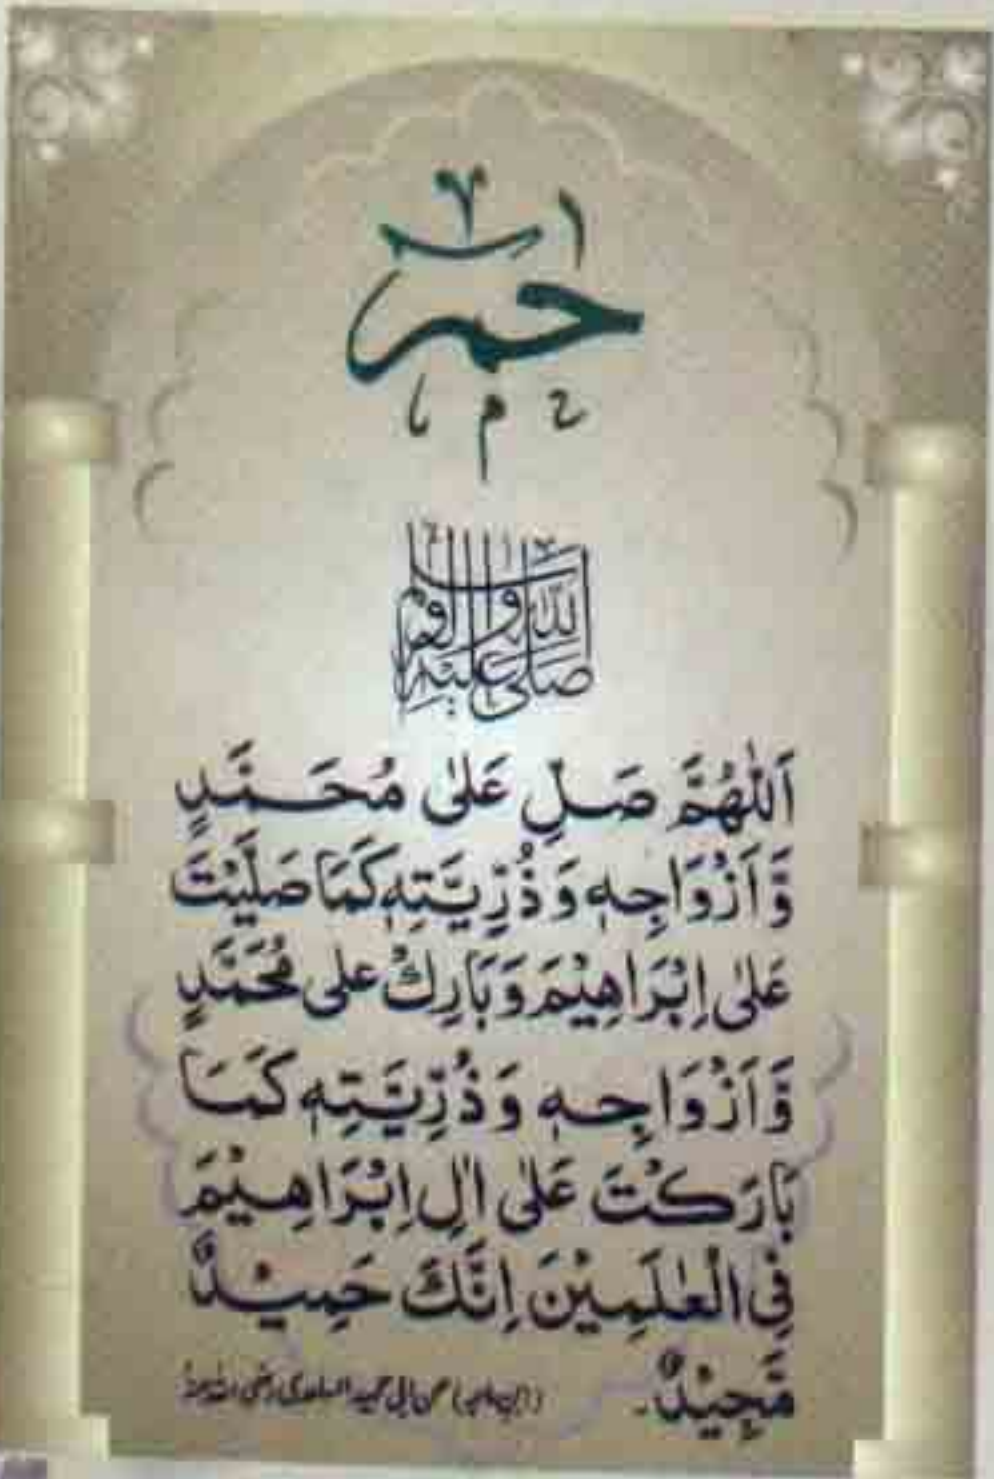 حمٓ
صلى الله عليه واله وسلم
اَللّٰهُمَّ صَلِّ عَلٰى مُحَمَّدٍ
وَّاَزْوَاجِهٖ وَذُرِّيَّتِهٖ كَمَا صَلَّيْتَ
عَلٰى اِبْرَاهِيْمَ وَبَارِكْ عَلٰى مُحَمَّدٍ
وَّاَزْوَاجِهٖ وَذُرِّيَّتِهٖ كَمَا
بَارَكْتَ عَلٰى اٰلِ اِبْرَاهِيْمَ
فِي الْعٰلَمِيْنَ اِنَّكَ حَمِيْدٌ
مَّجِيْدٌ۔ (ابن ماجہ) عن ابی حمید الساعدی رضی اللہ عنہ